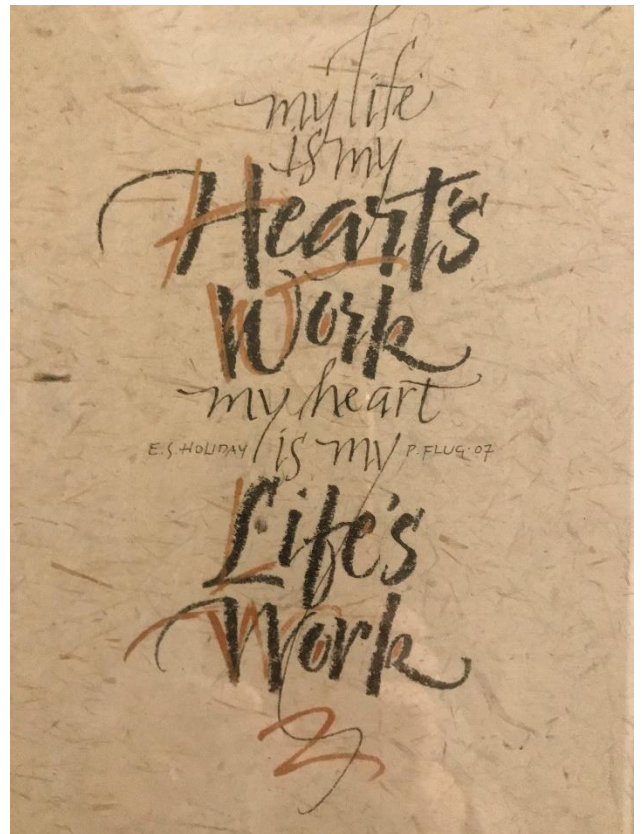 my life
is my
Heart's
Work
my heart
E.S. HOLIDAY is my P. FLUG · 07
Life's
Work